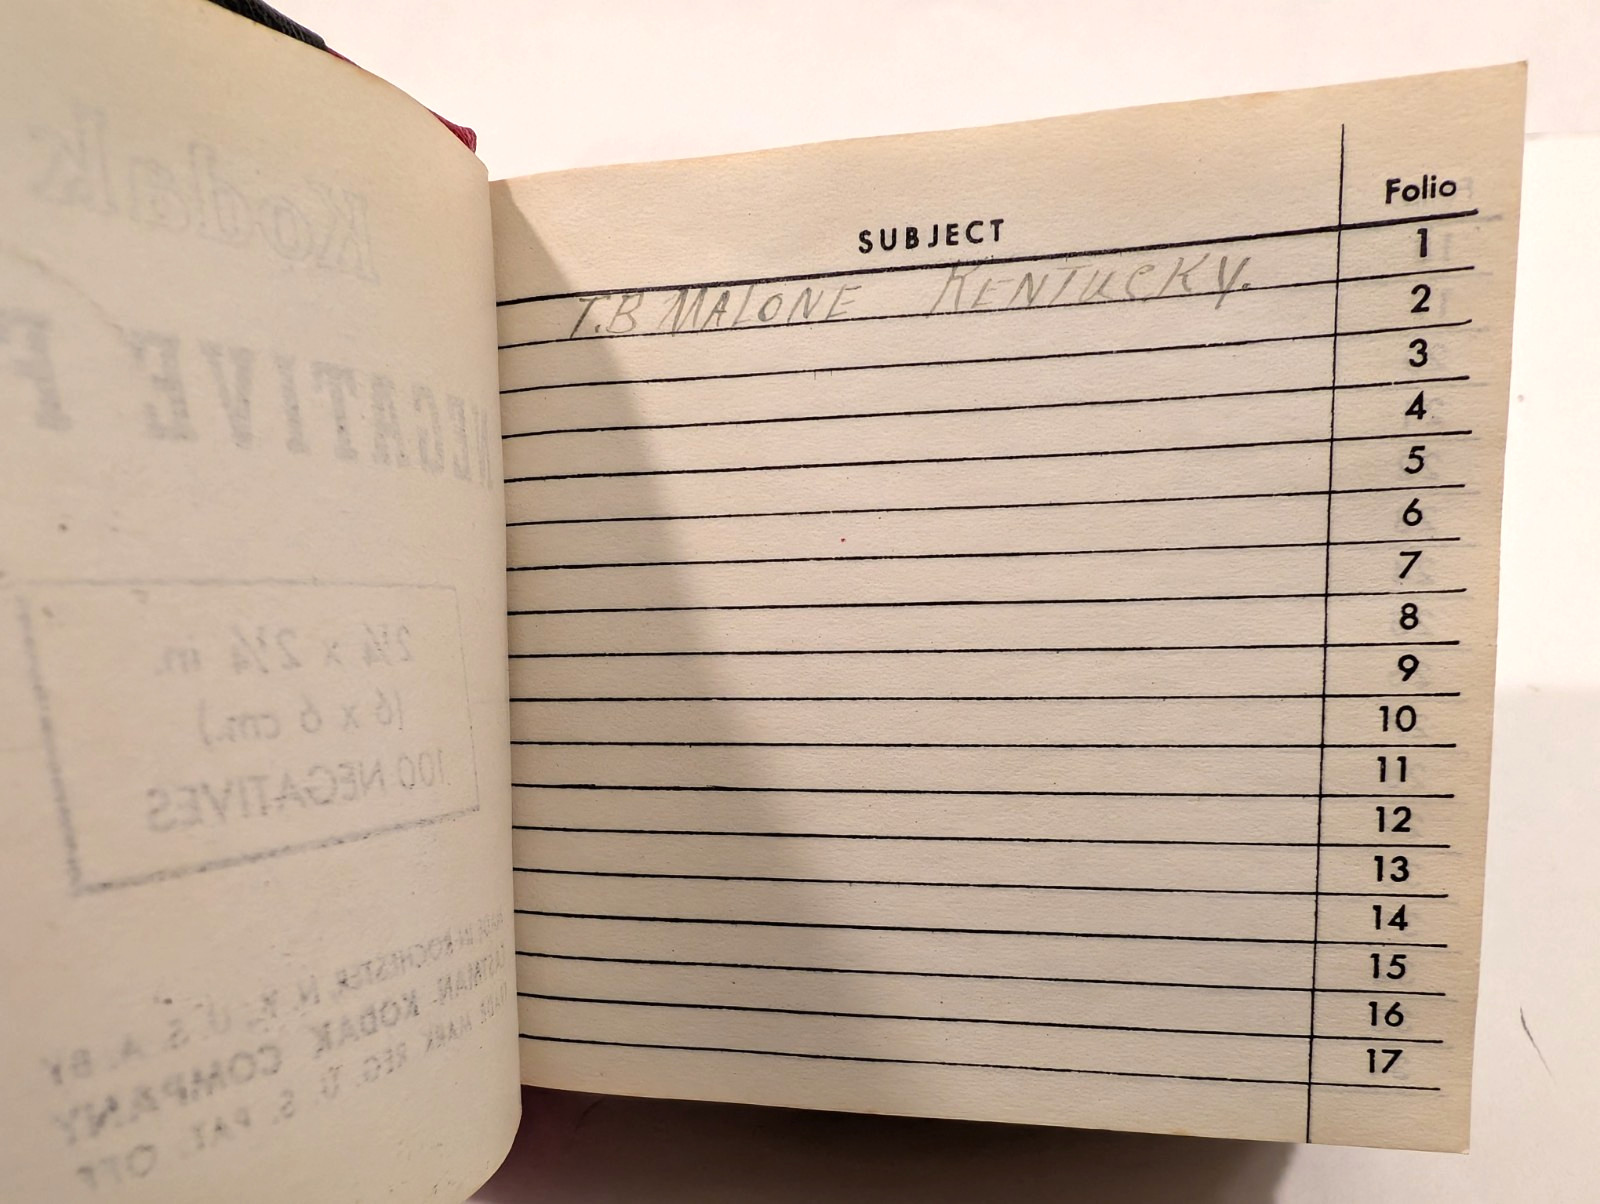 Kodak
NEGATIVE F
2¼ x 2¼ in.
(6 x 6 cm.)
100 NEGATIVES
MADE IN ROCHESTER, N. Y., U. S. A. BY
EASTMAN KODAK COMPANY
TRADE MARK REG. U. S. PAT. OFF
SUBJECT Folio
T.B MALONE KENTUCKY. 1
2
3
4
5
6
7
8
9
10
11
12
13
14
15
16
17